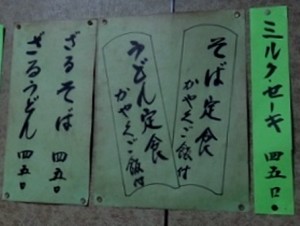 ミルクセーキ 四五〇
そば定食
かやくご飯付
うどん定食
かやくご飯付
ざるそば 四五〇
ざるうどん 四五〇